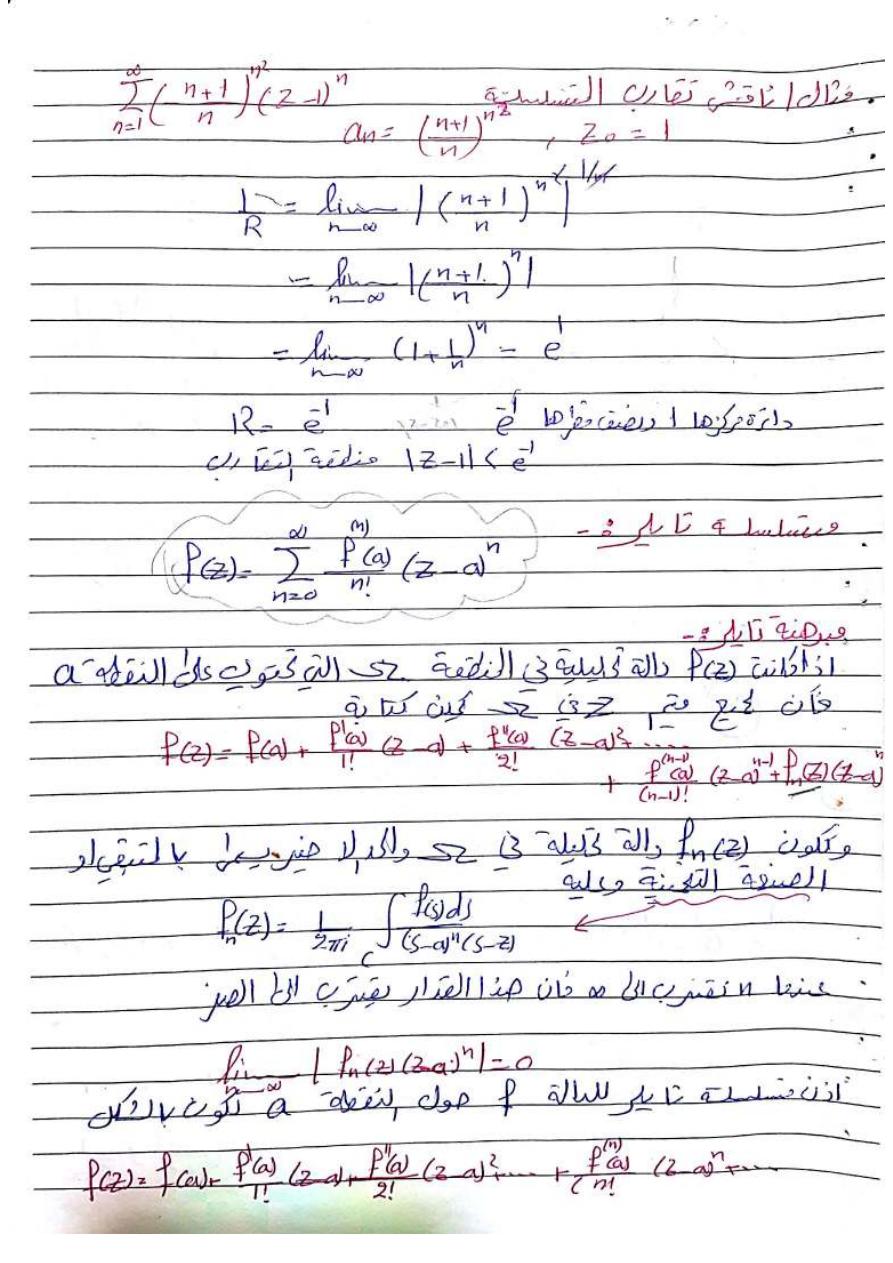 مثال / ناقش تقارب المتسلسلة \sum_{n=1}^{\infty} \left(\frac{n+1}{n}\right)^{n^2} (z-1)^n
a_n = \left(\frac{n+1}{n}\right)^{n^2} , z_0 = 1
\frac{1}{R} = \lim_{n \to \infty} \left| \left(\frac{n+1}{n}\right)^{n^2} \right|^{1/n}
= \lim_{n \to \infty} \left| \left(\frac{n+1}{n}\right)^n \right|
= \lim_{n \to \infty} \left(1+\frac{1}{n}\right)^n = e^1
R = e^{-1} دائرة مركزها 1 ونصف قطرها e^{-1}
|z-1| < e^{-1} منطقة التقارب
متسلسلة تايلر :-
f(z) = \sum_{n=0}^{\infty} \frac{f^{(n)}(a)}{n!} (z-a)^n
مبرهنة تايلر :-
اذا كانت f(z) دالة تحليلية في المنطقة Ω التي تحتوي على النقطة a
فأن لجميع قيم z في Ω يمكن كتابة
f(z) = f(a) + \frac{f'(a)}{1!} (z-a) + \frac{f''(a)}{2!} (z-a)^2 + .....
+ \frac{f^{(n-1)}(a)}{(n-1)!} (z-a)^{n-1} + f_n(z)(z-a)^n
وتكون f_n(z) دالة تحليلة في Ω والحد الاخير يسمى بالمتبقي او
الصيغة وعليه
f_n(z) = \frac{1}{2\pi i} \int_C \frac{f(s) ds}{(s-a)^n (s-z)}
عندما n تقترب الى ∞ فان هذا المقدار يقترب الى الصفر
\lim_{n \to \infty} | f_n(z) (z-a)^n | = 0
أذن متسلسلة تايلر للدالة f حول النقطة a تكون بالشكل
f(z) = f(a) + \frac{f'(a)}{1!} (z-a) + \frac{f''(a)}{2!} (z-a)^2 + .... + \frac{f^{(n)}(a)}{n!} (z-a)^n + ....